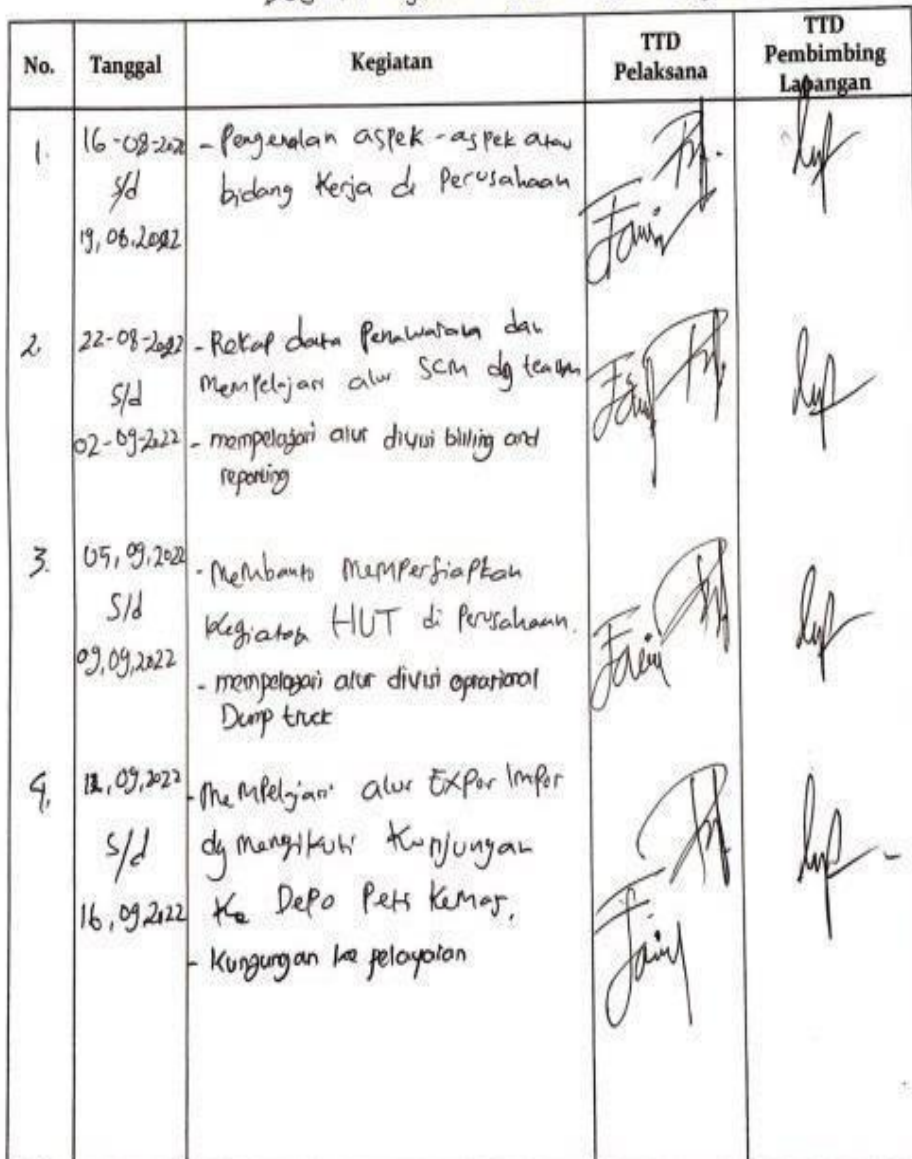 No. Tanggal Kegiatan TTD Pelaksana TTD Pembimbing Lapangan
1. 16-08-2022 - Pengenalan aspek-aspek atau
s/d bidang Kerja di Perusahaan
19,08.2022
2. 22-08-2022 - Rekap data Penawaran dan
S/d Mempelajari alur SCM dg
02-09-2022 - mempelajari alur divisi billing and
reporting
3. 05,09,2022 - Membantu Mempersiapkan
S/d Kegiatan HUT di Perusahaan.
09,09,2022 - mempelajari alur divisi oprarional
Dump truck
4. 12,09,2022 - Mempelajari alur Expor Impor
s/d dg mengikuti Kunjungan
16,09,2022 Ke Depo Peti Kemas.
- Kungungan ke pelayaran